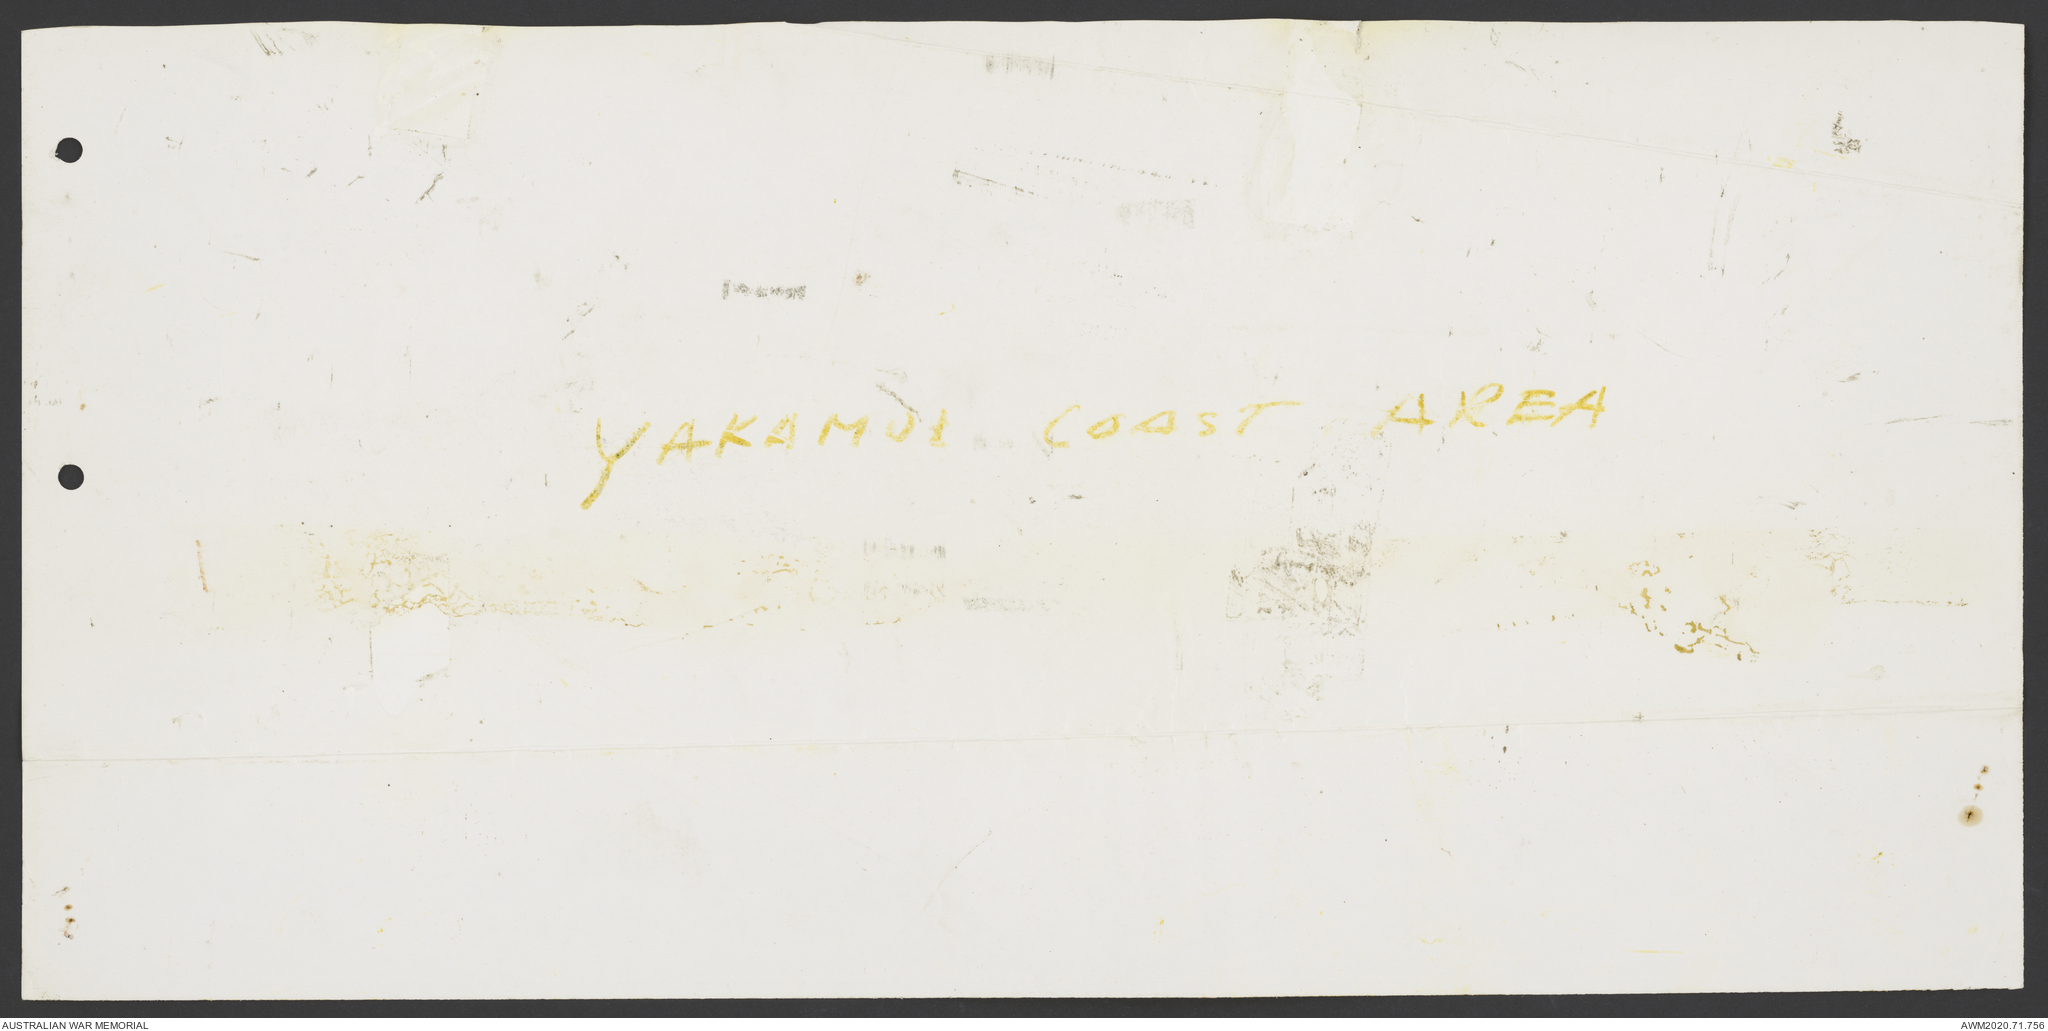 YAKAMUL COAST AREA
AUSTRALIAN WAR MEMORIAL
AWM2020.71.756